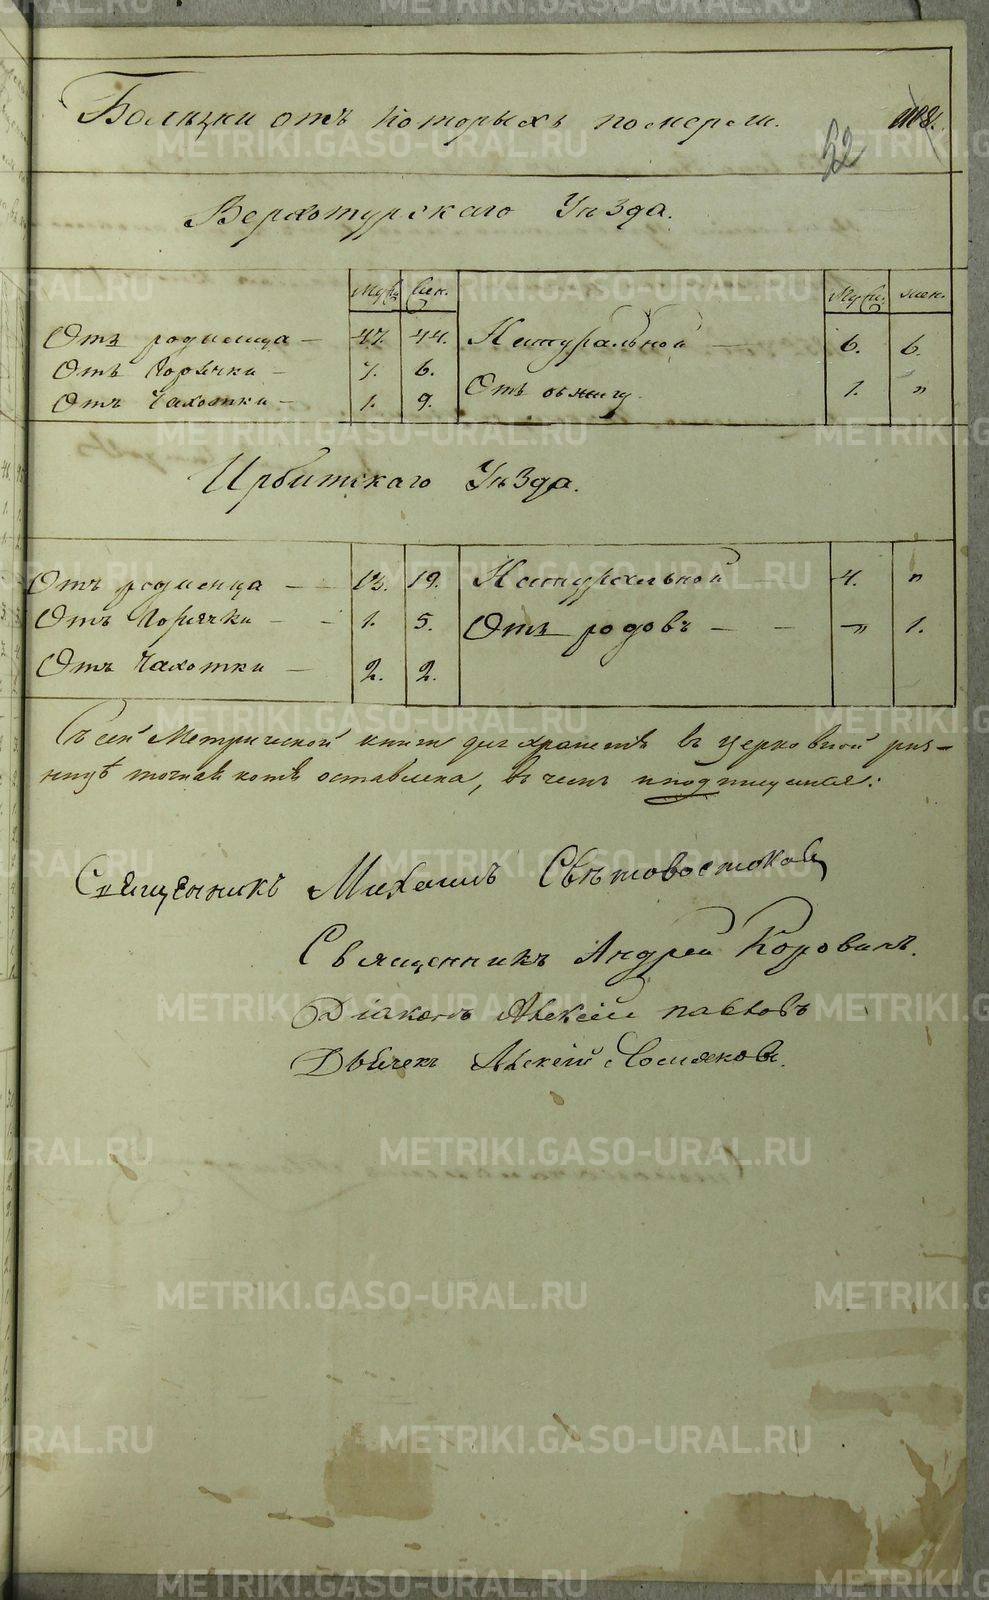 Болезни отъ которыхъ померли.
52
Верхотурскаго Уѣзда.
Муж. Жен. Муж. жен.
Отъ родимца — 47. 44. Натуральной — 6. 6.
Отъ Горячки — 7. 6. Отъ ожигу 1. "
Отъ Чахотки — 1. 9.
Ирбитскаго Уѣзда.
Отъ родимца — — 13. 19. Натуральной — 4. "
Отъ Горячки — — 1. 5. Отъ родовъ — — " 1.
Отъ Чахотки — 2. 2.
Съ сей Метрической книги для храненія въ церковной риз-
ницѣ точная копія оставлена, въ чемъ и подпишемся:
Священникъ Михаилъ Свѣтовостоковъ
Священникъ Андрей Коровинъ.
Діаконъ Алексій Павловъ
Дьячекъ Алексій Хомяковъ.
METRIKI.GASO-URAL.RU